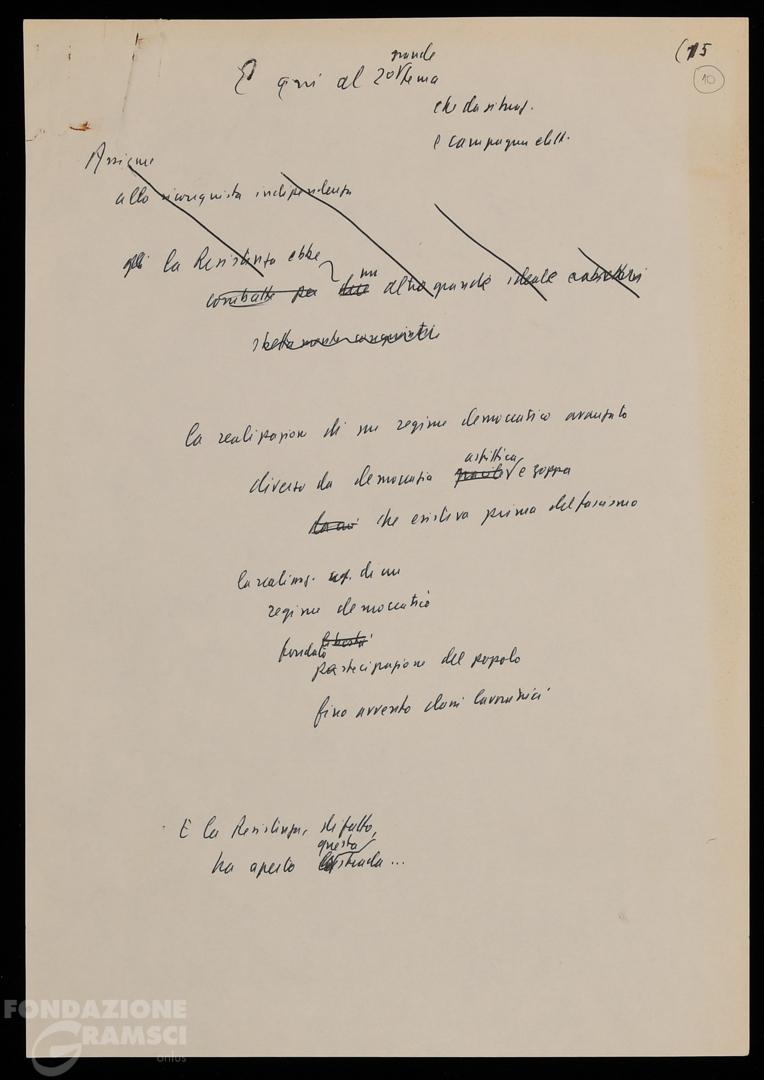 (15
10
grande
E qui al 2o tema
che da situaz.
e campagna elett.
Assieme
alla riconquista indipendenza
la Resistenza ebbe
un
combatté per altro grande ideale
la realizzazione di un regime democratico avanzato
asfittica
diverso da democrazia e zoppa
che esisteva prima del fascismo
la realizz. di un
regime democratico
libertà
fondato
partecipazione del popolo
fino avvento classi lavoratrici
E la Resistenza, di fatto,
questa
ha aperto la strada...
FONDAZIONE
GRAMSCI
onlus